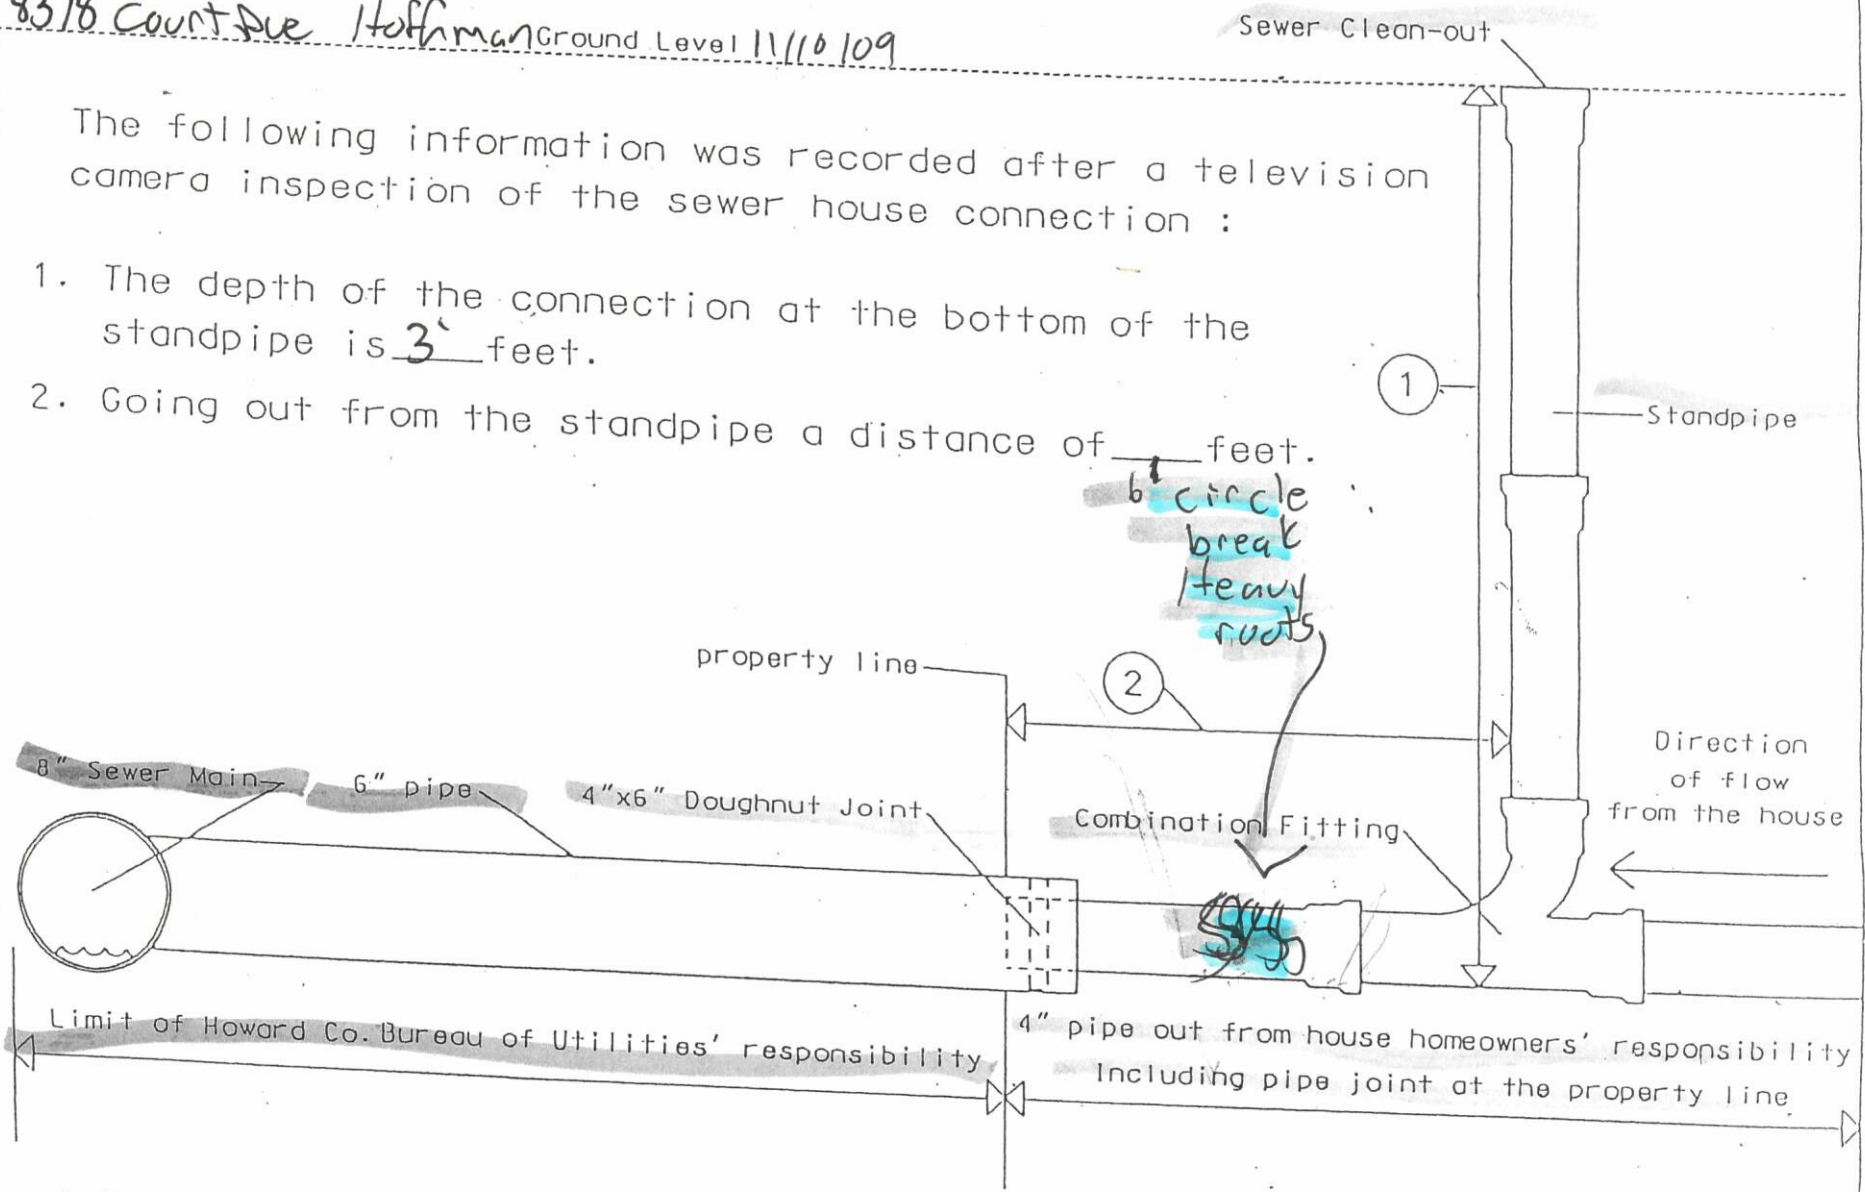 8318 Court Ave Hoffman Ground Level 11/10/09
Sewer Clean-out
The following information was recorded after a television
camera inspection of the sewer house connection :
1. The depth of the connection at the bottom of the
standpipe is 3' feet.
2. Going out from the standpipe a distance of____feet.
6' circle
break
Heavy
roots
1
Standpipe
property line
2
Direction
of flow
from the house
8" Sewer Main
6" pipe
4"x6" Doughnut Joint
Combination Fitting
Limit of Howard Co. Bureau of Utilities' responsibility
4" pipe out from house homeowners' responsibility
Including pipe joint at the property line